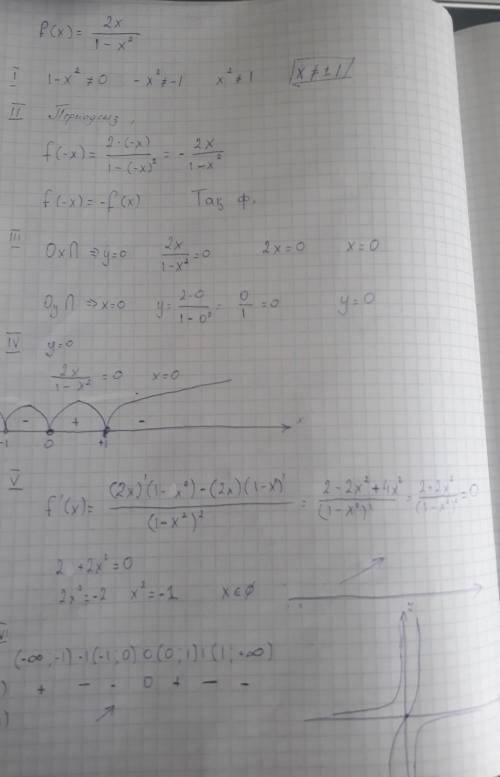 f(x) = 2x / 1-x²
I 1-x² ≠ 0 -x² ≠ -1 x² ≠ 1 x ≠ ±1
II Периодсыз,
f(-x) = 2·(-x) / 1-(-x)² = - 2x / 1-x²
f(-x) = -f(x) Тақ ф.
III Ox∩ ⇒ y=0 2x / 1-x² = 0 2x=0 x=0
Oy∩ ⇒ x=0 y = 2·0 / 1-0² = 0 / 1 = 0 y=0
IV y=0
2x / 1-x² = 0 x=0
- + - x
-1 0 +1
V f'(x) = (2x)'(1-x²)-(2x)(1-x²)' / (1-x²)² = 2-2x²+4x² / (1-x²)² = 2+2x² / (1-x²)² = 0
2 +2x²=0
2x²=-2 x²=-1 x∈∅
(-∞, -1) -1 (-1; 0) 0 (0, 1) 1 (1; +∞)
) + - - 0 + - -
) ↗